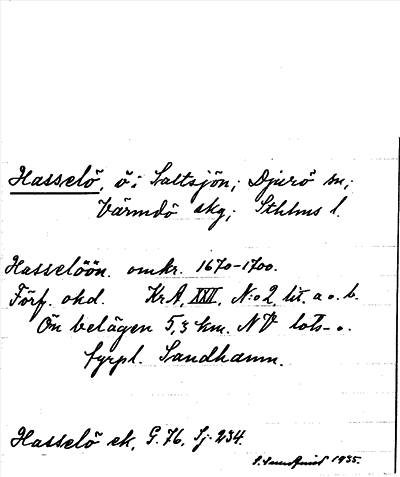 Hasselö, ö i Saltsjön; Djurö sn;
Värmdö skg; Sthlms l.
Hasselöön. omkr. 1670-1700.
Förf. okd. KrA, XXII, N:o 2, lit. a o. b.
Ön belägen 5,3 km. NV lots- o.
fyrpl. Sandhamn.
Hasselö ek, G. 76, Sj. 234.
1935.